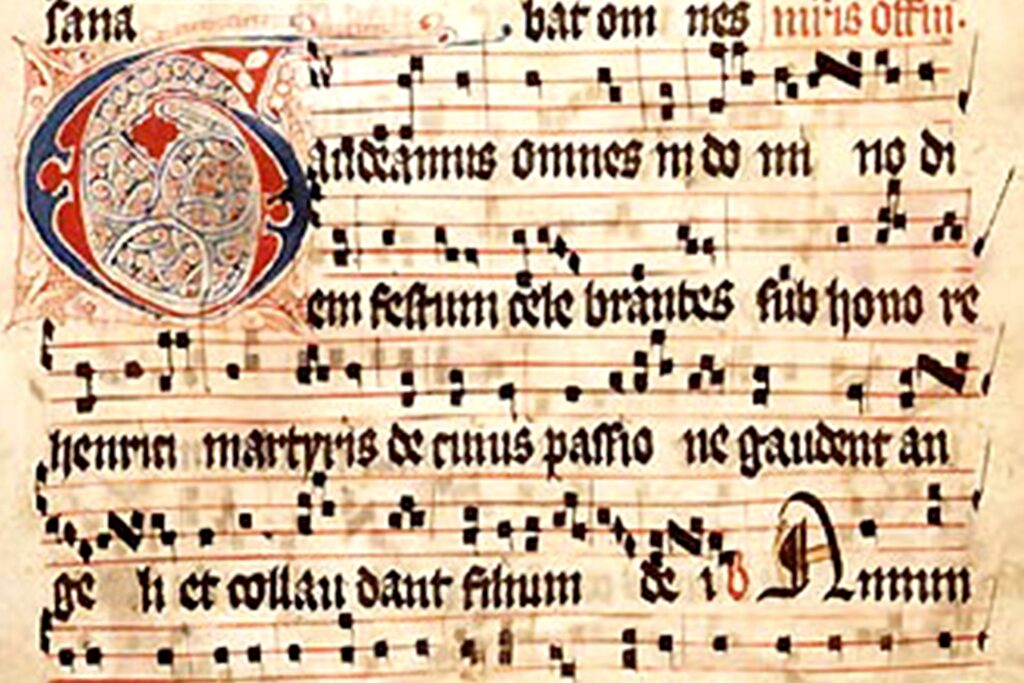 sana bat om nes missis offm.
Gaudeamus omnes in do mi no di
em festum cele brantes sub hono re
henrici martyris de cuius passio ne gaudent an
ge li et collau dant filium de i v Annum